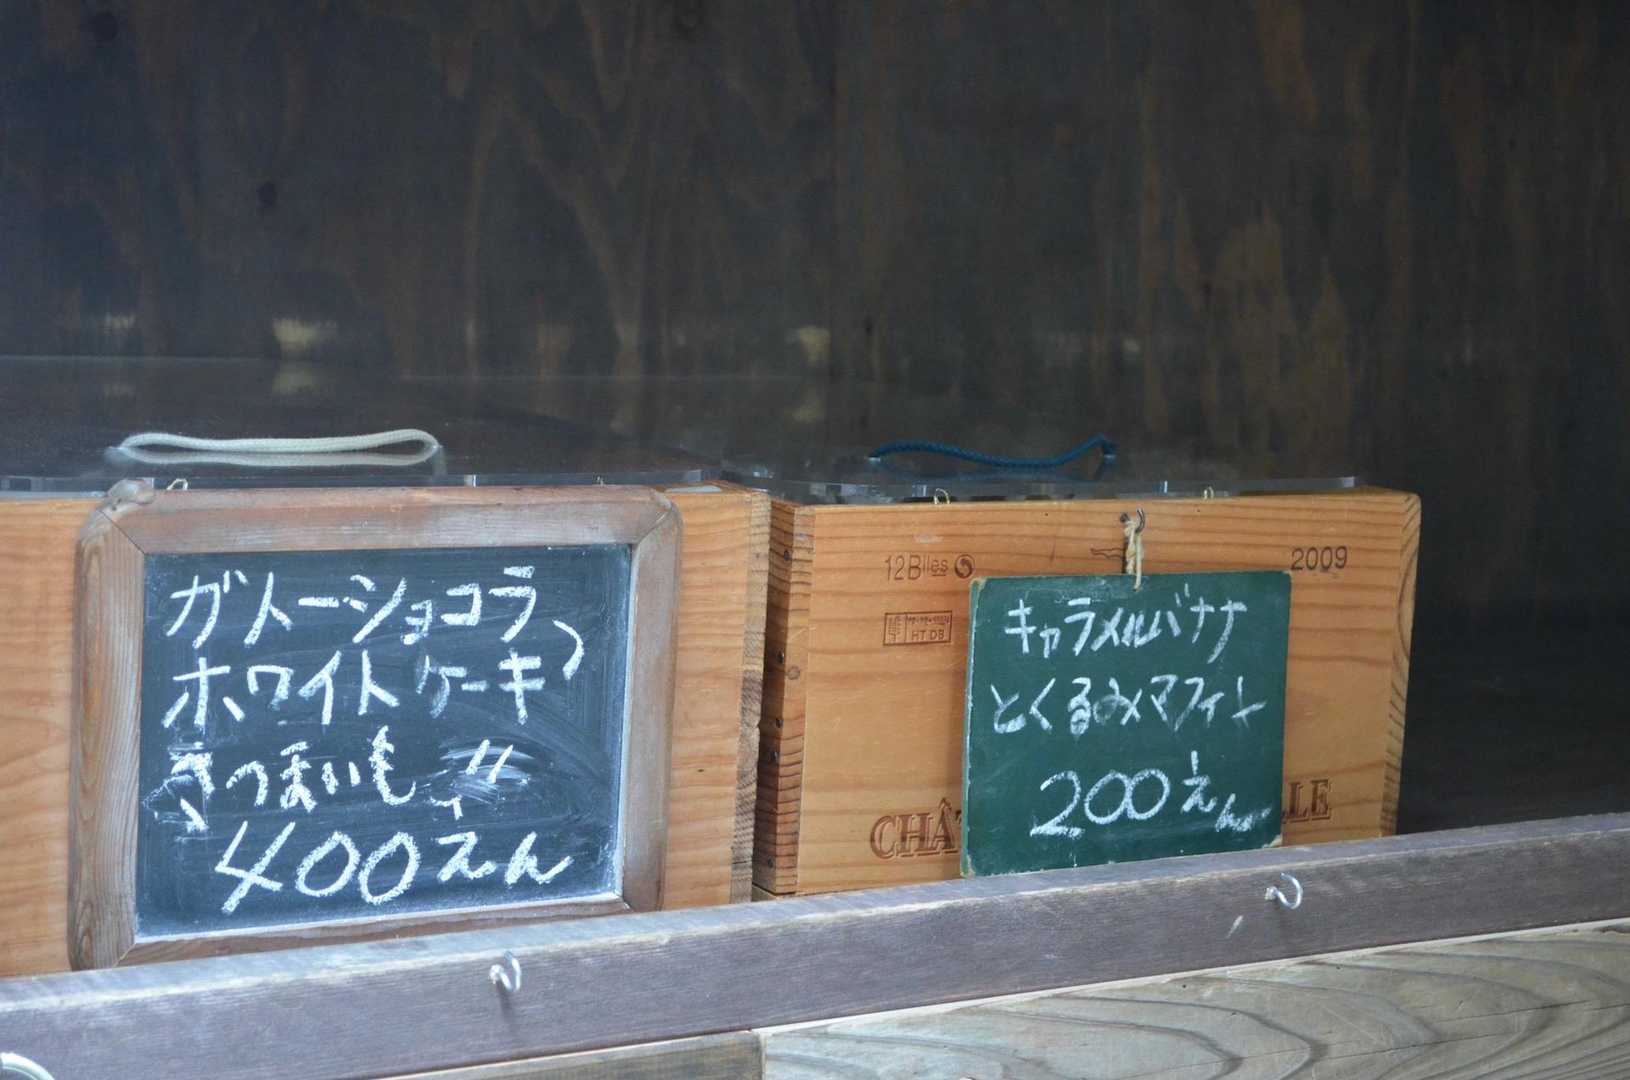 ガトーショコラ
ホワイトケーキ
さつまいも 〃
400えん
12Blles
2009
HT DB
キャラメルバナナ
とくるみマフィン
200えん
CHÂ
LLE